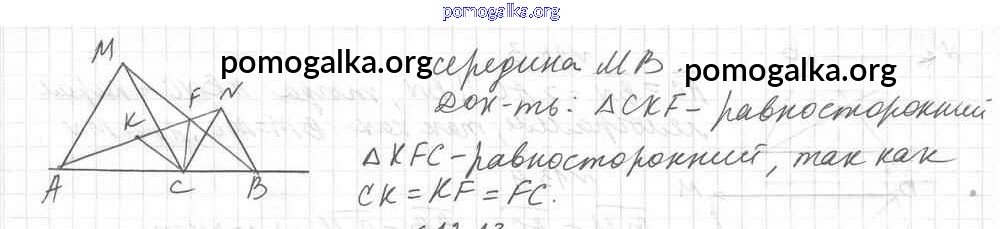 pomogalka.org
pomogalka.org середина MB.
pomogalka.org
Док-ть: △CKF - равносторонний
△KFC - равносторонний, так как
CK = KF = FC.
M
F N
K
A C B